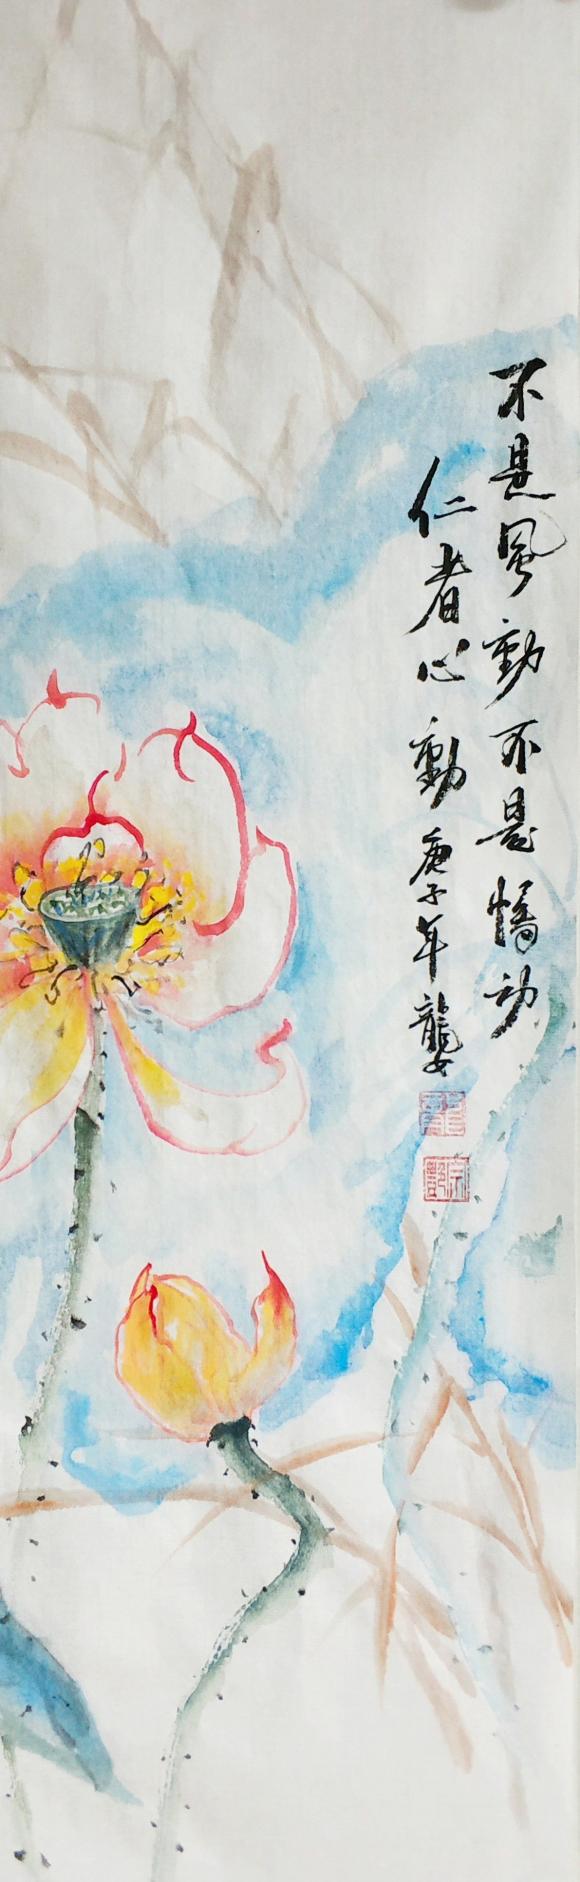 不是風動不是幡動
仁者心動庚子年龍女